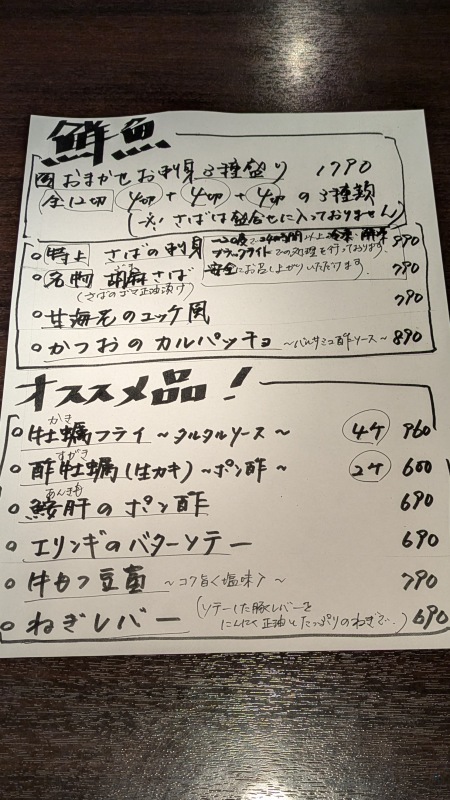 鮮魚
おまかせお刺身3種盛り 1790
全12切 4切+4切+4切の3種類
(※さばは盛合せに入っておりません)
○ 特上 さばの刺身 -20度で24時間以上冷凍・解凍 890
ブラックライトでの処理を行っております。
安全にお召し上がりいただけます。
○ 名物 胡麻さば 790
(さばのゴマ正油漬け)
○ 甘海老のユッケ風 790
○ かつおのカルパッチョ ~バルサミコ酢ソース~ 890
オススメ品!
かき
○ 牡蠣フライ ~タルタルソース~ 4ケ 960
すがき
○ 酢牡蠣(生カキ) ~ポン酢~ 2ケ 600
あんきも
○ 鮟肝のポン酢 690
○ エリンギのバターソテー 690
○ 牛もつ豆富 ~コク旨く塩味~ 790
○ ねぎレバー (ソテーした豚レバーを 690
にんにく正油とたっぷりのねぎで..)